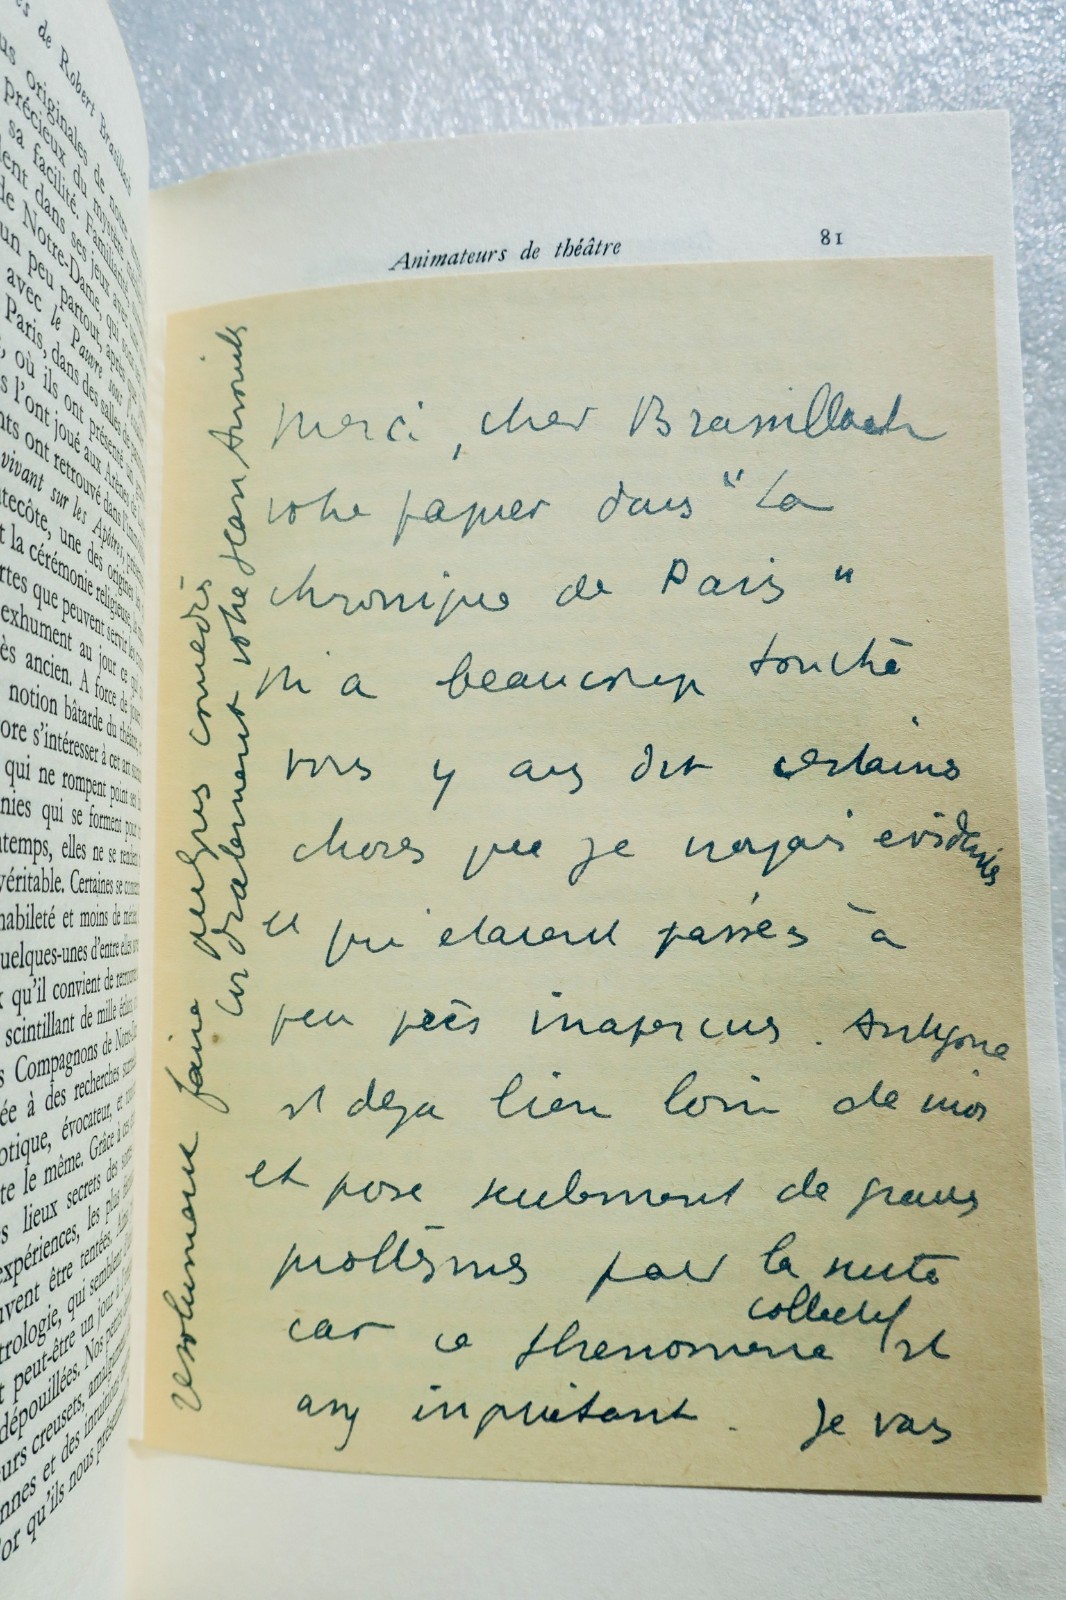 es de Robert Brasillach
us originales de nous
précieux du mystère
sa facilité. Familiarité,
lent dans ses jeux avec
de Notre-Dame, qui sont
un peu partout, après
avec le Pauvre sous l'
Paris, dans des salles de
, où ils ont présenté un
s l'ont joué aux Arènes de
nts ont retrouvé dans l'
vivant sur les Apôtres,
tecôte, une des origines
t la cérémonie religieuse,
rtes que peuvent servir les
exhument au jour ce
ès ancien. A force de
notion bâtarde du théâtre,
ore s'intéresser à cet art
qui ne rompent point
nies qui se forment pour
ntemps, elles ne se
véritable. Certaines se
habileté et moins de
uelques-unes d'entre elles
x qu'il convient de
scintillant de mille
s Compagnons de Notre-
ée à des recherches
otique, évocateur, et
te le même. Grâce à
s lieux secrets des
expériences, les plus
uvent être tentées.
trologie, qui semblent
t peut-être un jour à
dépouillées. Nos
urs creusets,
nnes et des intuitions
or qu'ils nous
Animateurs de théâtre 81
Merci, cher Brasillach
votre papier dans "La
chronique de Paris"
m'a beaucoup touché
vous y avez dit certaines
choses que je croyais evidentes
et qui etaient passées à
peu près inaperçues. Antigone
est deja bien loin de moi
et pose seulement de graves
problèmes pour la suite
car ce phenomene collectif est
assez inquietant. Je vais
resolument faire quelques comedies
cordialement votre Jean Anouilh